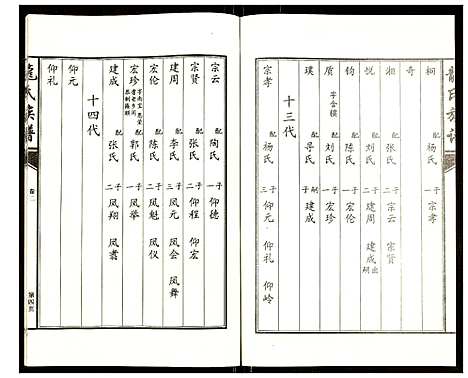 桐 配 楊氏 子一 宗孝
奇
湘 配 張氏 子二 宗云 宗賢
悦 配 刘氏 子二 建周 建成 出嗣
鈞 配 陈氏 子一 宏伦
质 字含模 配 刘氏 子一 宏珍
璞 配 寻氏 嗣子 建成
十三代
宗孝 配 杨氏 子三 仰元 仰礼 仰岭
龍氏族譜
卷二
第四页
宗云 配 陶氏 子一 仰德
宗賢 配 张氏 子二 仰程 仰宏
建周 配 李氏 子三 凤元 凤会 凤舞
宏伦 配 陈氏 子二 凤魁 凤仪
宏珍 配 郭氏 子一 凤举
建成 配 张氏 子二 凤翔 凤翥
十四代
仰元
仰礼